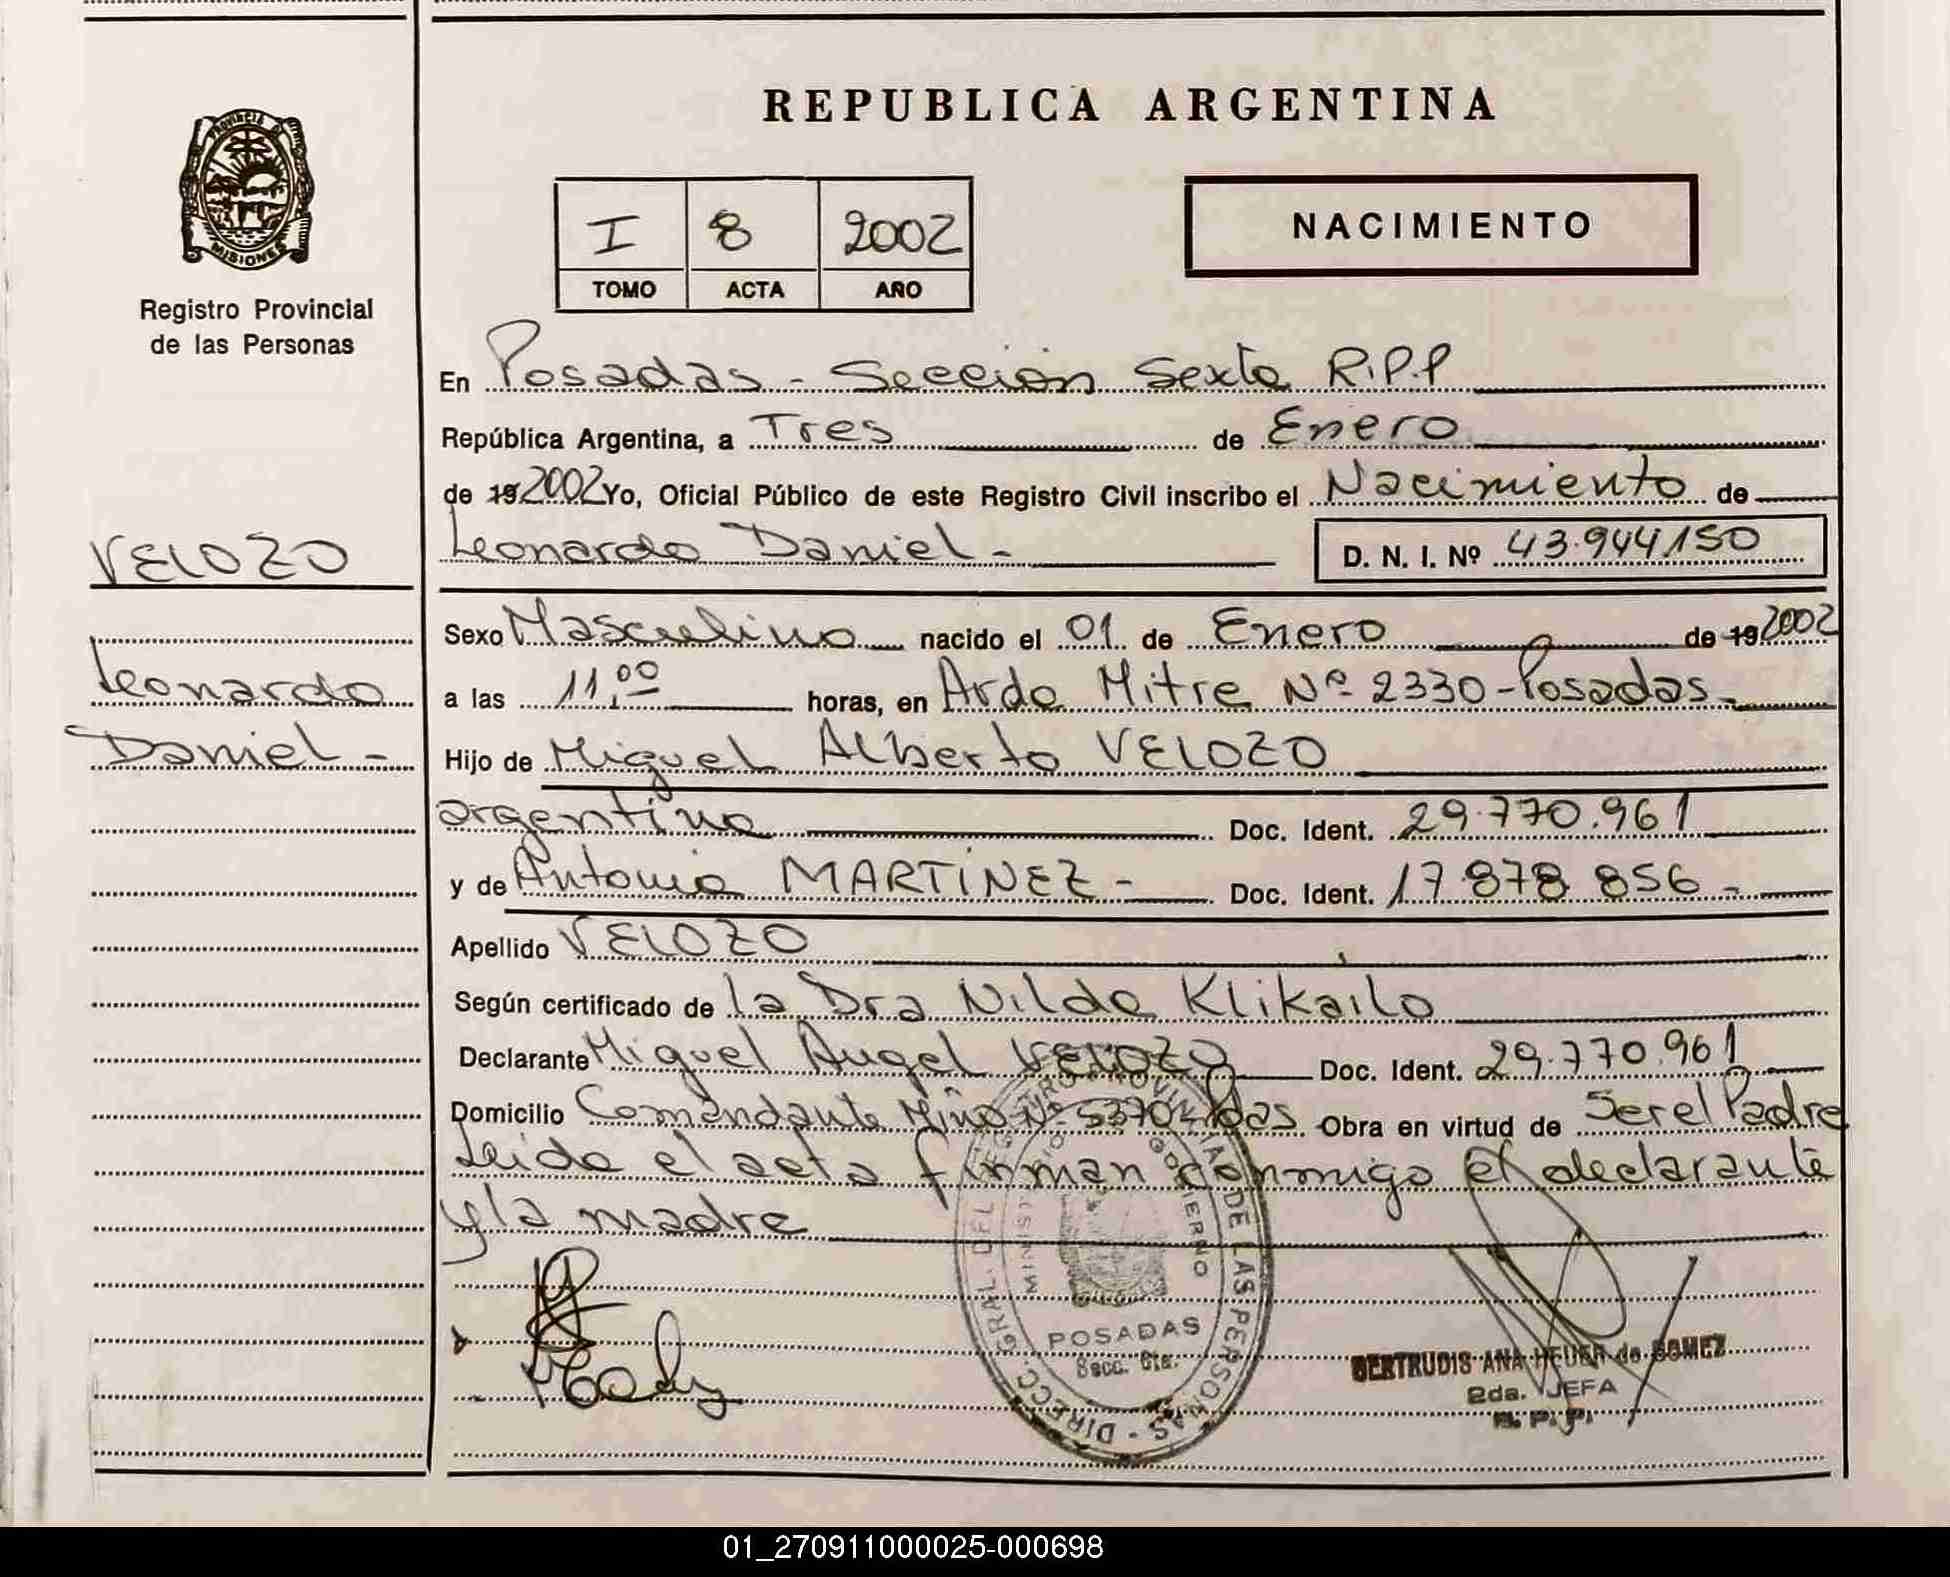 REPUBLICA ARGENTINA
PROVINCIA DE MISIONES
Registro Provincial
de las Personas
I 8 2002
TOMO ACTA AÑO
NACIMIENTO
En Posadas - Sección Sexta R.P.P
República Argentina, a Tres de Enero
de 19 2002 Yo, Oficial Público de este Registro Civil inscribo el Nacimiento de
Leonardo Daniel - D. N. I. Nº 43.944150
VELOZO
Leonardo
Daniel -
Sexo Masculino nacido el 01 de Enero de 19 2002
a las 11,00 horas, en Avda Mitre Nº 2330 - Posadas -
Hijo de Miguel Alberto VELOZO
argentino Doc. Ident. 29.770.961
y de Antonia MARTÍNEZ - Doc. Ident. 17.878.856 -
Apellido VELOZO
Según certificado de la Dra Nilda Klikailo
Declarante Miguel Angel VELOZO Doc. Ident. 29.770.961
Domicilio Comandante Miño Nº Pdas Obra en virtud de Ser el Padre
Leida el acta firman conmigo el declarante
y la madre
DIRECC. GRAL. DEL REGISTRO PROVINCIAL DE LAS PERSONAS
MINISTERIO GOBIERNO
POSADAS
Secc. 6ta.
GERTRUDIS ANA HEUER de GOMEZ
2da. JEFA
R. P. P.
01_270911000025-000698